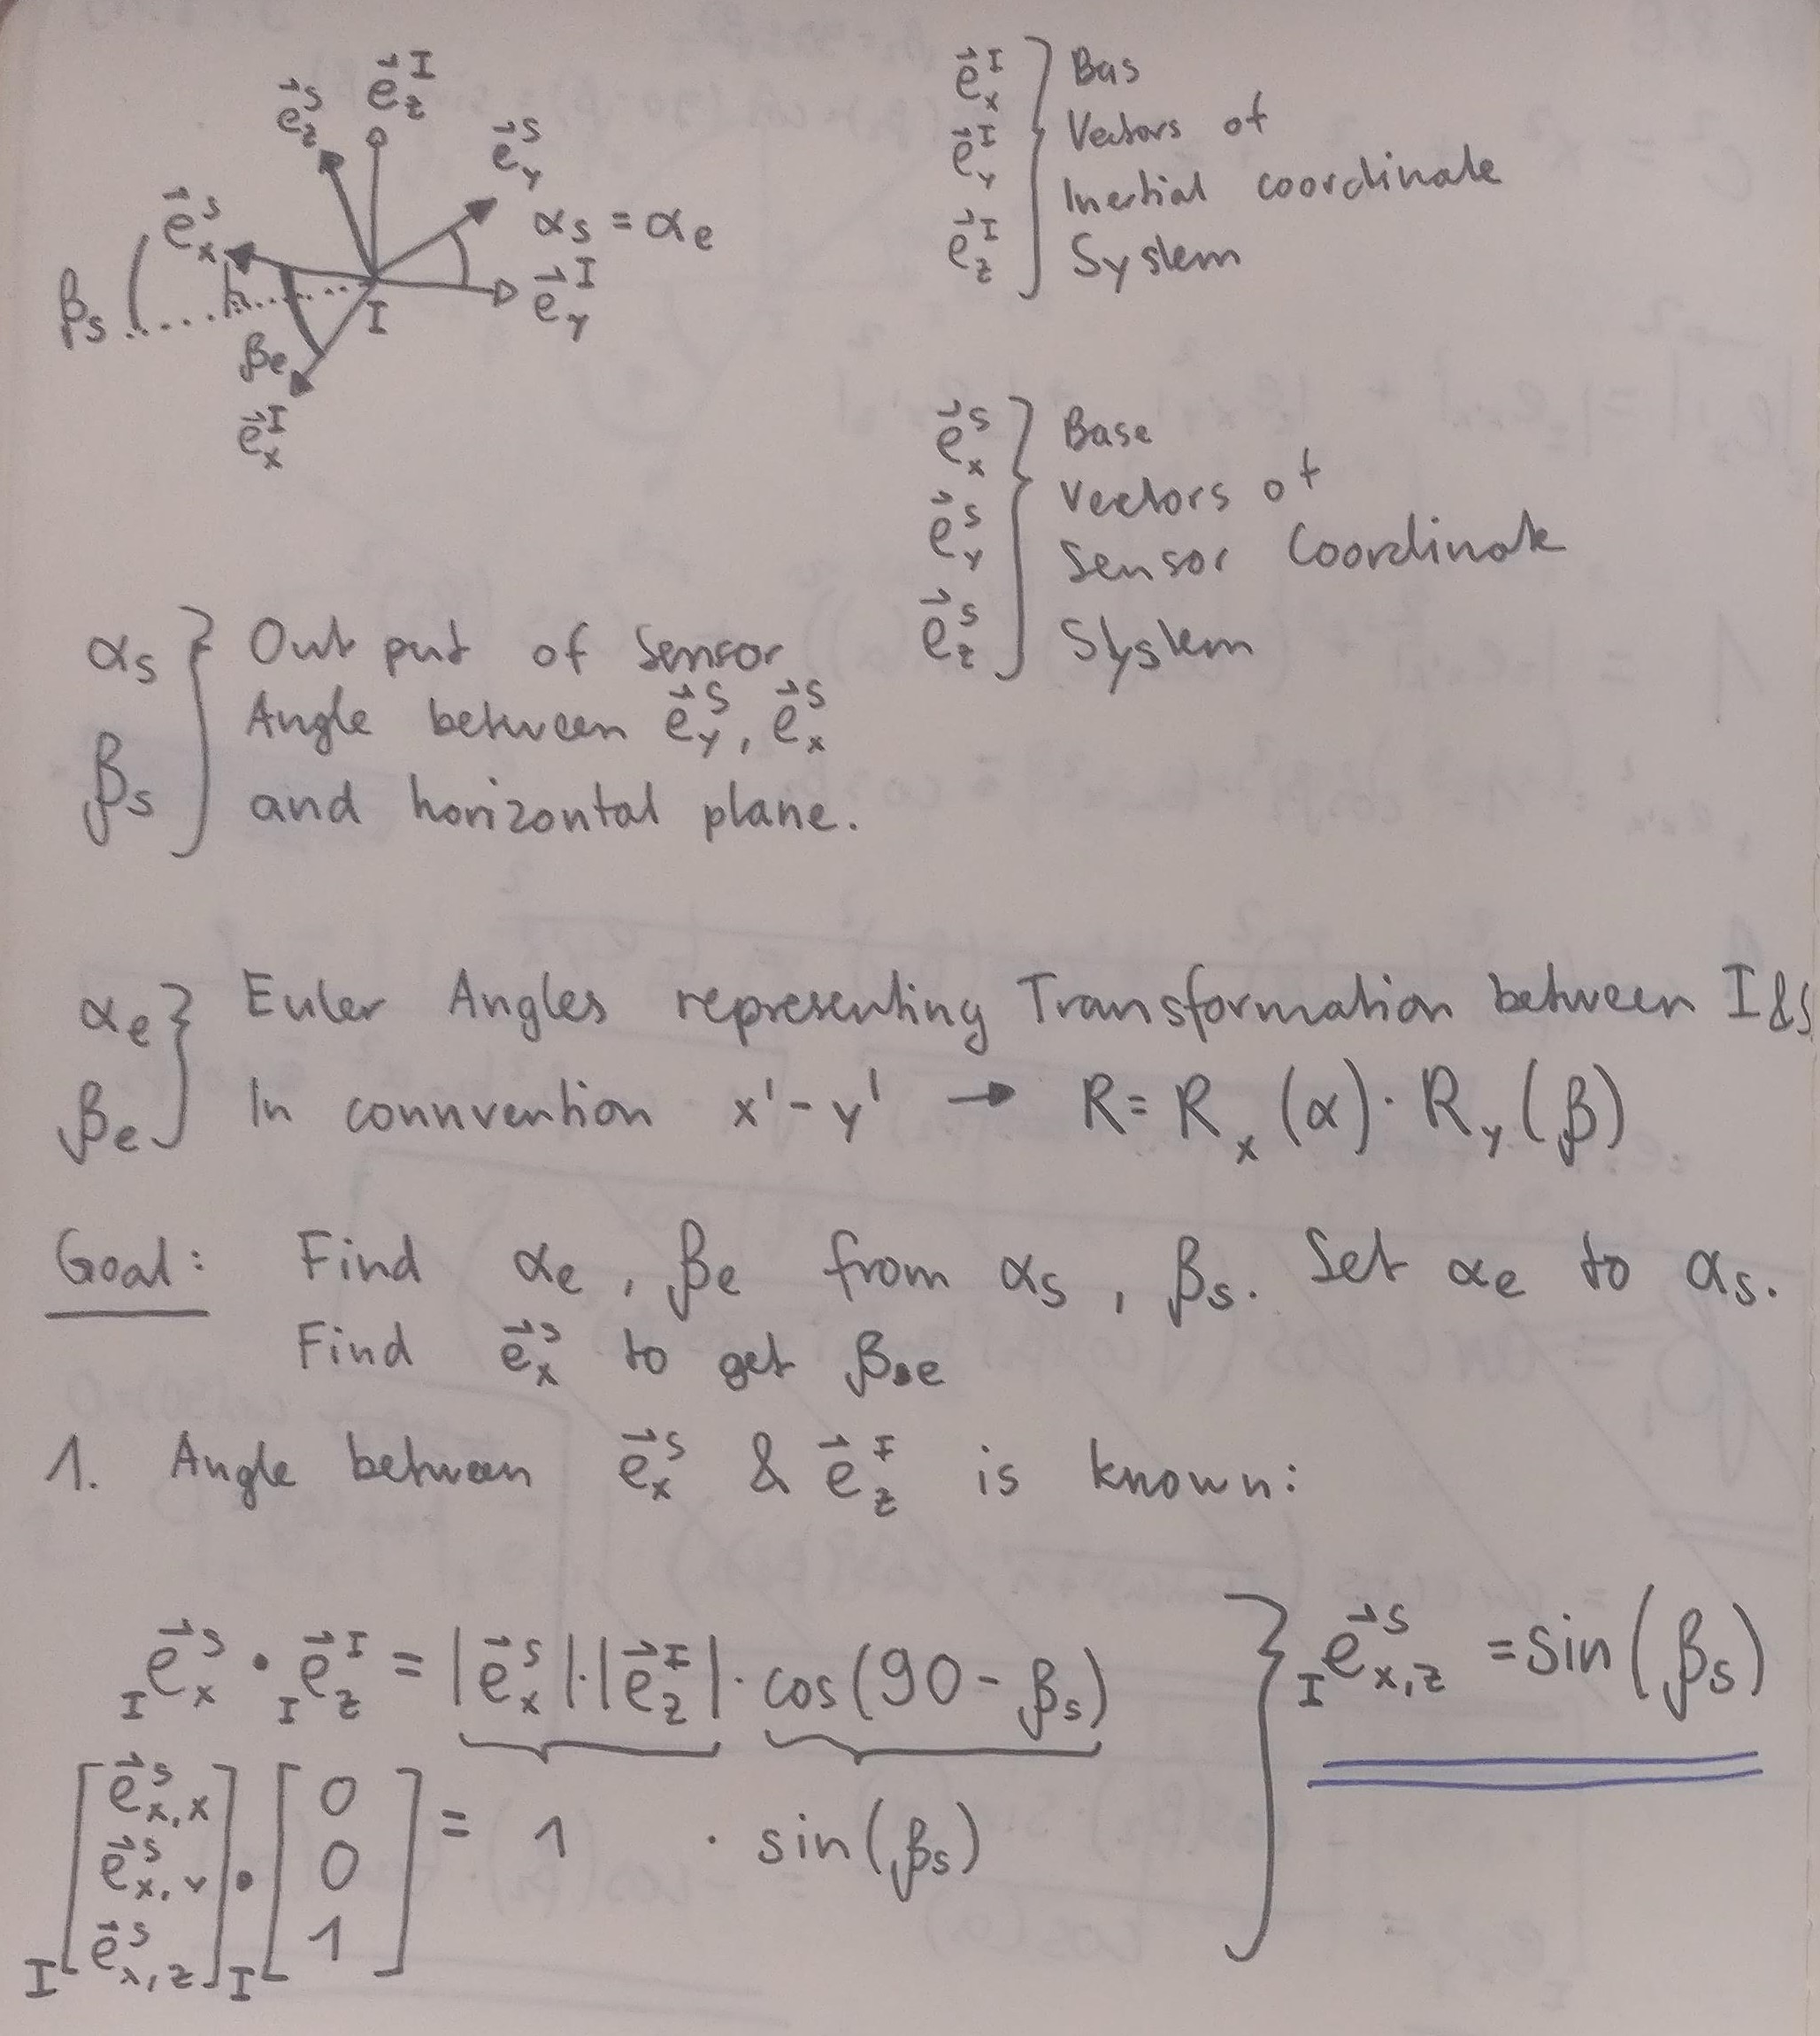 e⃗_z^S e⃗_z^I
e⃗_y^S
e⃗_x^S α_s = α_e
β_s I e⃗_y^I
β_e
e⃗_x^I
e⃗_x^I e⃗_y^I e⃗_z^I } Bas
Vectors of
Inertial coordinate
System
e⃗_x^S e⃗_y^S e⃗_z^S } Base
vectors of
Sensor Coordinate
System
α_s β_s } Out put of Sensor
Angle between e⃗_y^S, e⃗_x^S
and horizontal plane.
α_e β_e } Euler Angles representing Transformation between I&S
In connvention x'-y' → R = R_x (α) · R_y (β)
Goal: Find α_e, β_e from α_s, β_s. Set α_e to α_s.
Find e⃗_x^S to get β_e
1. Angle between e⃗_x^S & e⃗_z^I is known:
_I e⃗_x^S • _I e⃗_z^I = |e⃗_x^S|·|e⃗_z^I| · cos(90 - β_s) } _I e⃗_{x,z}^S = sin(β_s)
_I [e⃗_{x,x}^S e⃗_{x,y}^S e⃗_{x,z}^S] • _I [0 0 1] = 1 · sin(β_s)